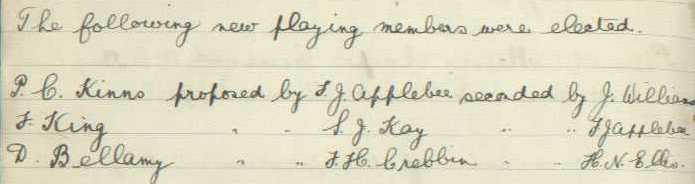 The following new playing members were elected.
P. C. Kinns proposed by F. J. Applebee seconded by J. Williams
F. King " " S. J. Kay " " F J Applebee
D. Bellamy " " F. H. Crebbin " " H. N. Ellis.